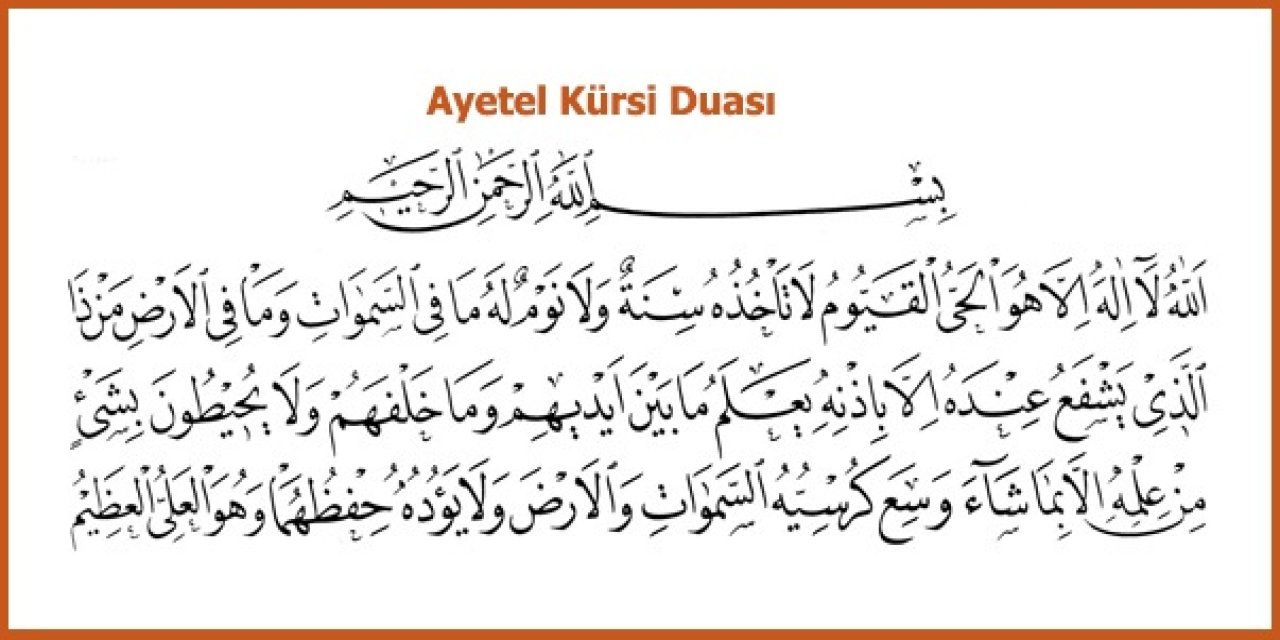 Ayetel Kürsi Duası
بِسْمِ اللّٰهِ الرَّحْمٰنِ الرَّحِيمِ
اَللّٰهُ لَٓا اِلٰهَ اِلَّا هُوَ الْحَيُّ الْقَيُّومُ لَا تَأْخُذُهُ سِنَةٌ وَلَا نَوْمٌ لَهُ مَا فِي السَّمٰوَاتِ وَمَا فِي الْاَرْضِ مَنْ ذَا
الَّذِي يَشْفَعُ عِنْدَهُ اِلَّا بِاِذْنِهِ يَعْلَمُ مَا بَيْنَ اَيْدِيهِمْ وَمَا خَلْفَهُمْ وَلَا يُحِيطُونَ بِشَيْءٍ
مِنْ عِلْمِهِ اِلَّا بِمَا شَٓاءَ وَسِعَ كُرْسِيُّهُ السَّمٰوَاتِ وَالْاَرْضَ وَلَا يَؤُدُهُ حِفْظُهُمَا وَهُوَ الْعَلِيُّ الْعَظِيمُ